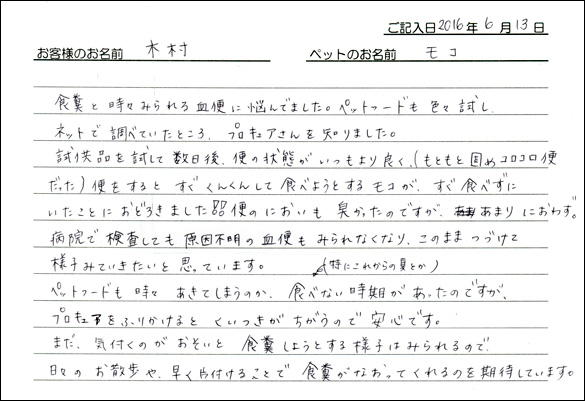 ご記入日 2016年 6月 13日
お客様のお名前 木村 ペットのお名前 モコ
食糞と時々みられる血便に悩んでました。ペットフードも色々試し、
ネットで調べていたところ、プロキュアさんを知りました。
試供品を試して数日後、便の状態がいつもより良く、(もともと固めコロコロ便
だった)便をすると すぐくんくんして食べようとするモコが、すぐ食べずに
いたことにおどろきました 便のにおいも 臭かったのですが、あまりにおわず。
病院で検査しても原因不明の血便もみられなくなり、このままつづけて
様子みていきたいと思っています。 (特にこれからの夏とか)
ペットフードも時々 あきてしまうのか、食べない時期があったのですが、
プロキュアをふりかけると くいつきがちがうので安心です。
まだ、気付くのがおそいと 食糞しようとする様子はみられるので、
日々のお散歩や、早く片付けることで 食糞がなおってくれるのを期待しています。